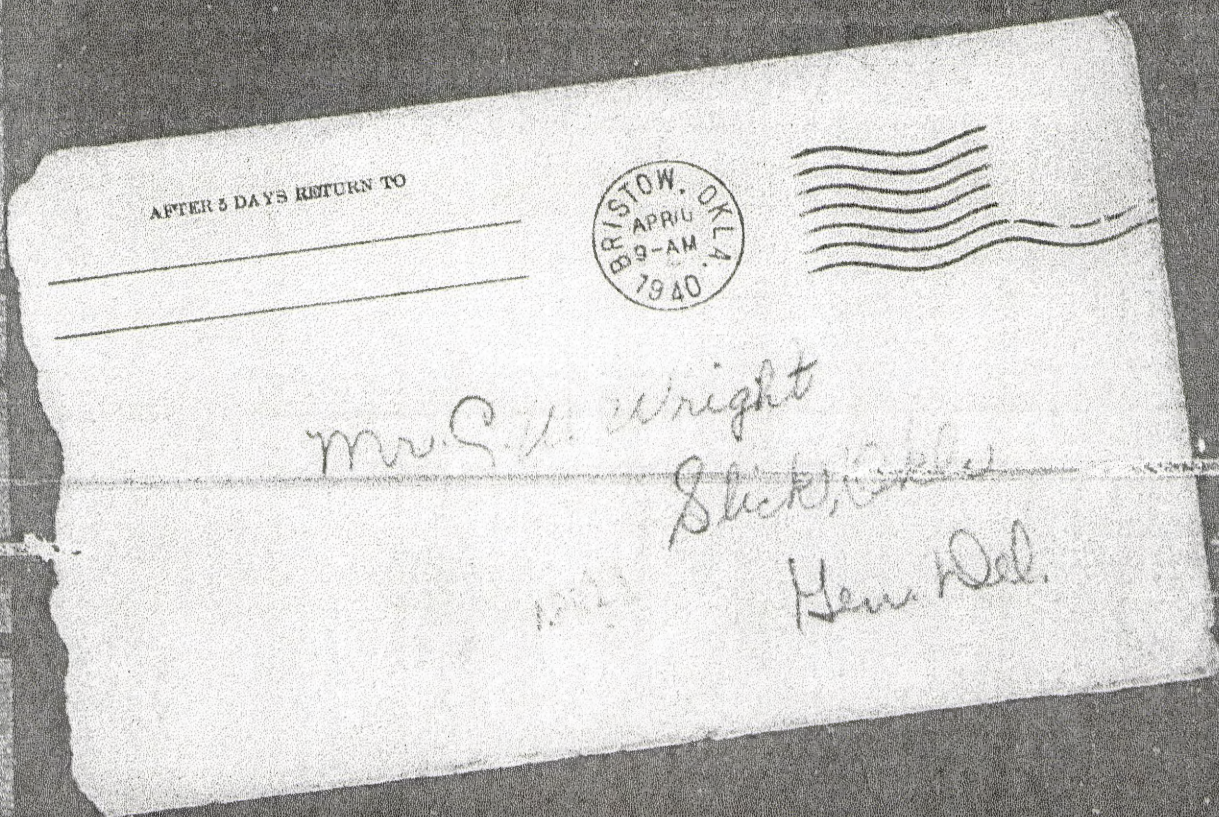 AFTER 5 DAYS RETURN TO
BRISTOW, OKLA.
APRIL
9-AM
1940
Mr. Wright
Slick, Okla
Gen. Del.